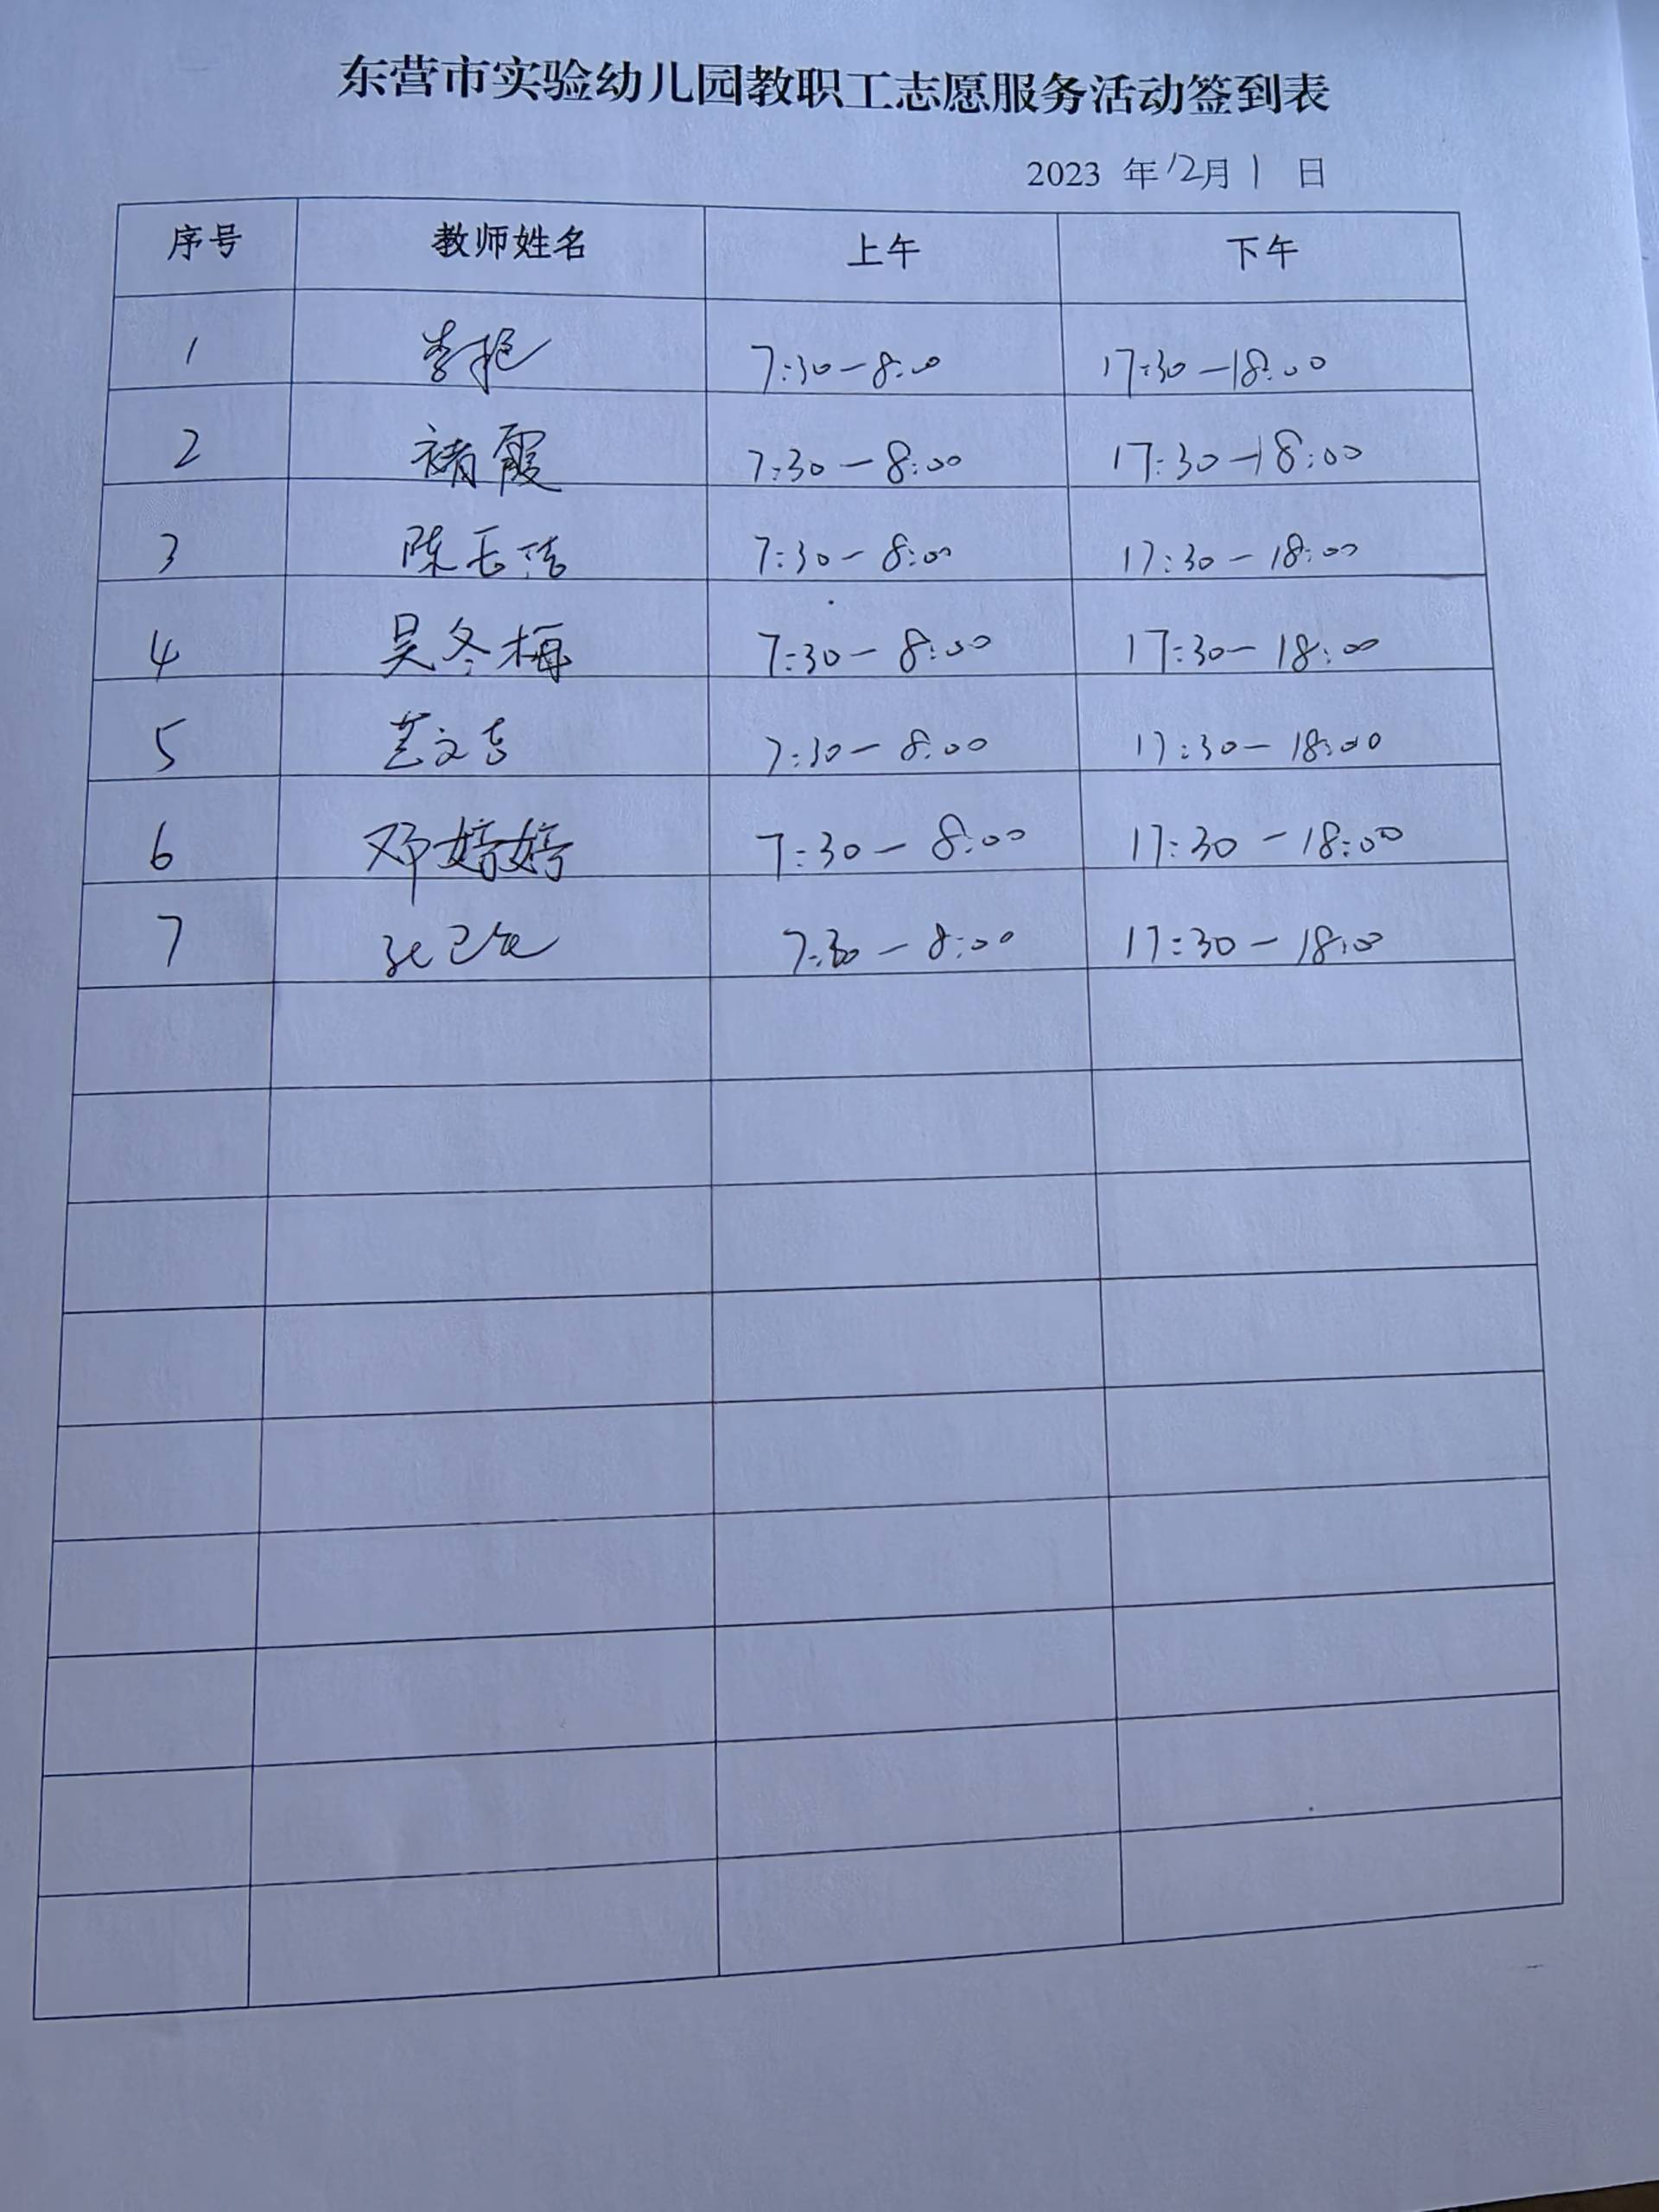 东营市实验幼儿园教职工志愿服务活动签到表
2023 年 12月 1 日
序号 教师姓名 上午 下午
1 李艳 7:30-8:00 17:30-18:00
2 褚霞 7:30-8:00 17:30-18:00
3 陈 7:30-8:00 17:30-18:00
4 吴冬梅 7:30-8:00 17:30-18:00
5 7:30-8:00 17:30-18:00
6 邓婷婷 7:30-8:00 17:30-18:00
7 7:30-8:00 17:30-18:00